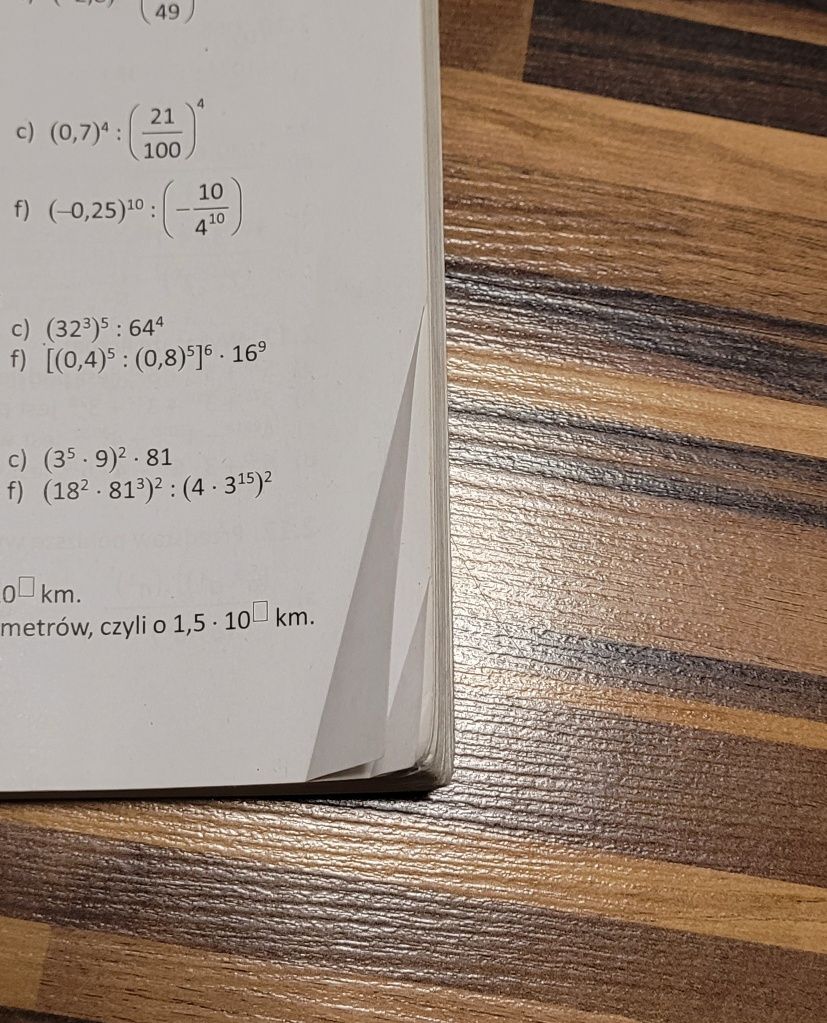 49
c) (0,7)⁴ : (21/100)⁴
f) (–0,25)¹⁰ : (–10/4¹⁰)
c) (32³)⁵ : 64⁴
f) [(0,4)⁵ : (0,8)⁵]⁶ · 16⁹
c) (3⁵ · 9)² · 81
f) (18² · 81³)² : (4 · 3¹⁵)²
0□ km.
metrów, czyli o 1,5 · 10□ km.